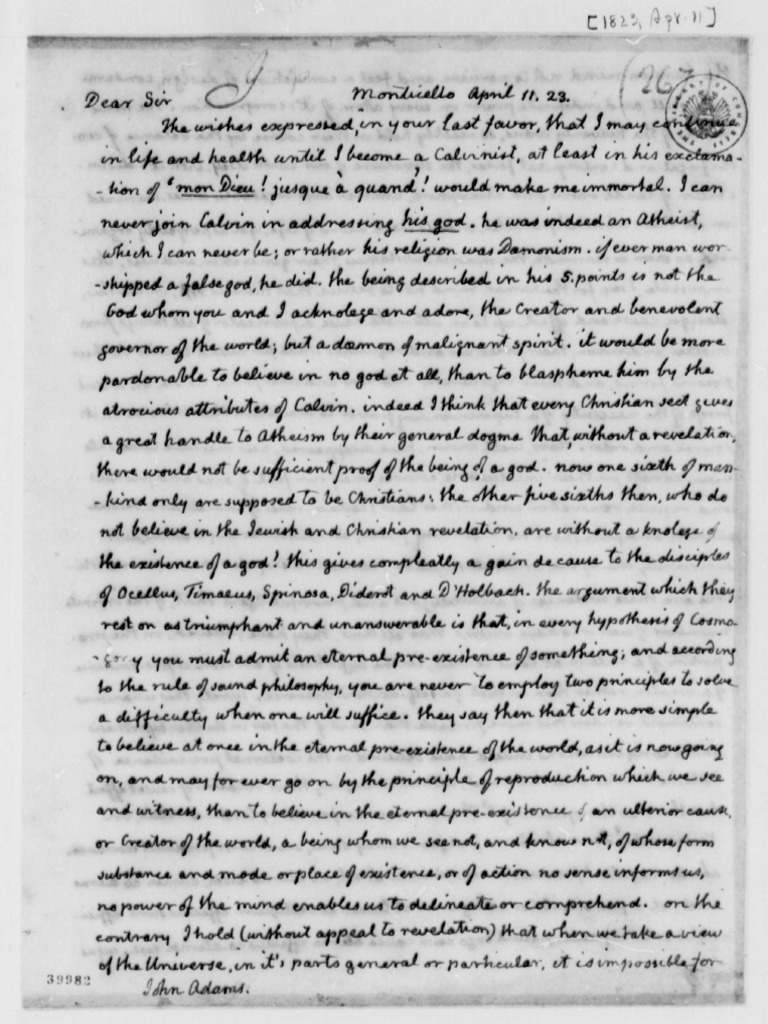 [1823, Apr. 11]
267
Monticello April 11. 23.
Dear Sir
The wishes expressed, in your last favor, that I may continue
in life and health until I become a Calvinist, at least in his exclama-
-tion of 'mon Dieu! jusque à quand'! would make me immortal. I can
never join Calvin in addressing his god. he was indeed an Atheist,
which I can never be; or rather his religion was Dæmonism. if ever man wor-
-shipped a false god, he did. the being described in his 5. points is not the
God whom you and I acknolege and adore, the Creator and benevolent
governor of the world; but a dæmon of malignant spirit. it would be more
pardonable to believe in no god at all, than to blaspheme him by the
atrocious attributes of Calvin. indeed I think that every Christian sect gives
a great handle to Atheism by their general dogma that, without a revelation,
there would not be sufficient proof of the being of a god. now one sixth of man-
-kind only are supposed to be Christians: the other five sixths then, who do
not believe in the Jewish and Christian revelation, are without a knolege of
the existence of a god! this gives compleatly a gain de cause to the disciples
of Ocellus, Timaeus, Spinosa, Diderot and D'Holbach. the argument which they
rest on as triumphant and unanswerable is that, in every hypothesis of Cosmo-
-gony you must admit an eternal pre-existence of something; and according
to the rule of sound philosophy, you are never to employ two principles to solve
a difficulty when one will suffice. they say then that it is more simple
to believe at once in the eternal pre-existence of the world, as it is now going
on, and may for ever go on by the principle of reproduction which we see
and witness, than to believe in the eternal pre-existence of an ulterior cause,
or Creator of the world, a being whom we see not, and know not, of whose form
substance and mode or place of existence, or of action no sense informs us,
no power of the mind enables us to delineate or comprehend. on the
contrary I hold (without appeal to revelation) that when we take a view
of the Universe, in it's parts general or particular, it is impossible for
39982
John Adams.